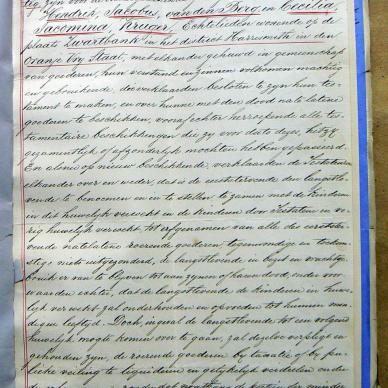 Hendrik, Jakobus, van den Berg, en Cecilia
Jacomina, Kreeger, Echtelieden wonende op de
plaats Zwartbank in het district Harrismith in den
Oranje Vry Staat, met elkander gehuwd in gemeenschap
van goederen, hun verstand en zinnen volkomen machtig
en gebruikende, de verklaarden besloten te zyn hun tes-
tament te maken, en over hunne met den dood na te latene
goederen te beschikken, vooraf echter herroepende alle tes-
tamentaire beschikkingen die zy voor dato dezes, hetzy
gezamentlyk of afzonderlyk mochten hebben gepasseerd.
En alsnu op nieuw beschikkende, verklaarden de Testateuren
elkander over en weder, dat is de eerststervende den langstle-
vende te benoemen en in te stellen te zamen met de kinderen
in dit huwelyk verwekt en de kinderen door Testatrice in vo-
rig huwelyk verwekt tot erfgenamen van alle des eerststerv-
ende natelatene roerende goederen, tegenwoordige en toekom-
stige niets uitgezonderd, de langstlevende in bezit en vrucht ge-
bruik er van te blyven tot aan zynen of haren dood, onder voor-
waarden echter, dat de langstlevende de kinderen in huwe-
lyk verwekt zal onderhouden en opvoeden tot hunnen mon-
digen leeftyd. Doch, ingeval de langstlevende tot een volgend
huwelyk mogte komen over te gaan, zal dezelve verpligt en
gehouden zyn, de roerende goederen by taxatie of by pu-
blieke veiling te liquideeren en gelykelyk verdeelen onder